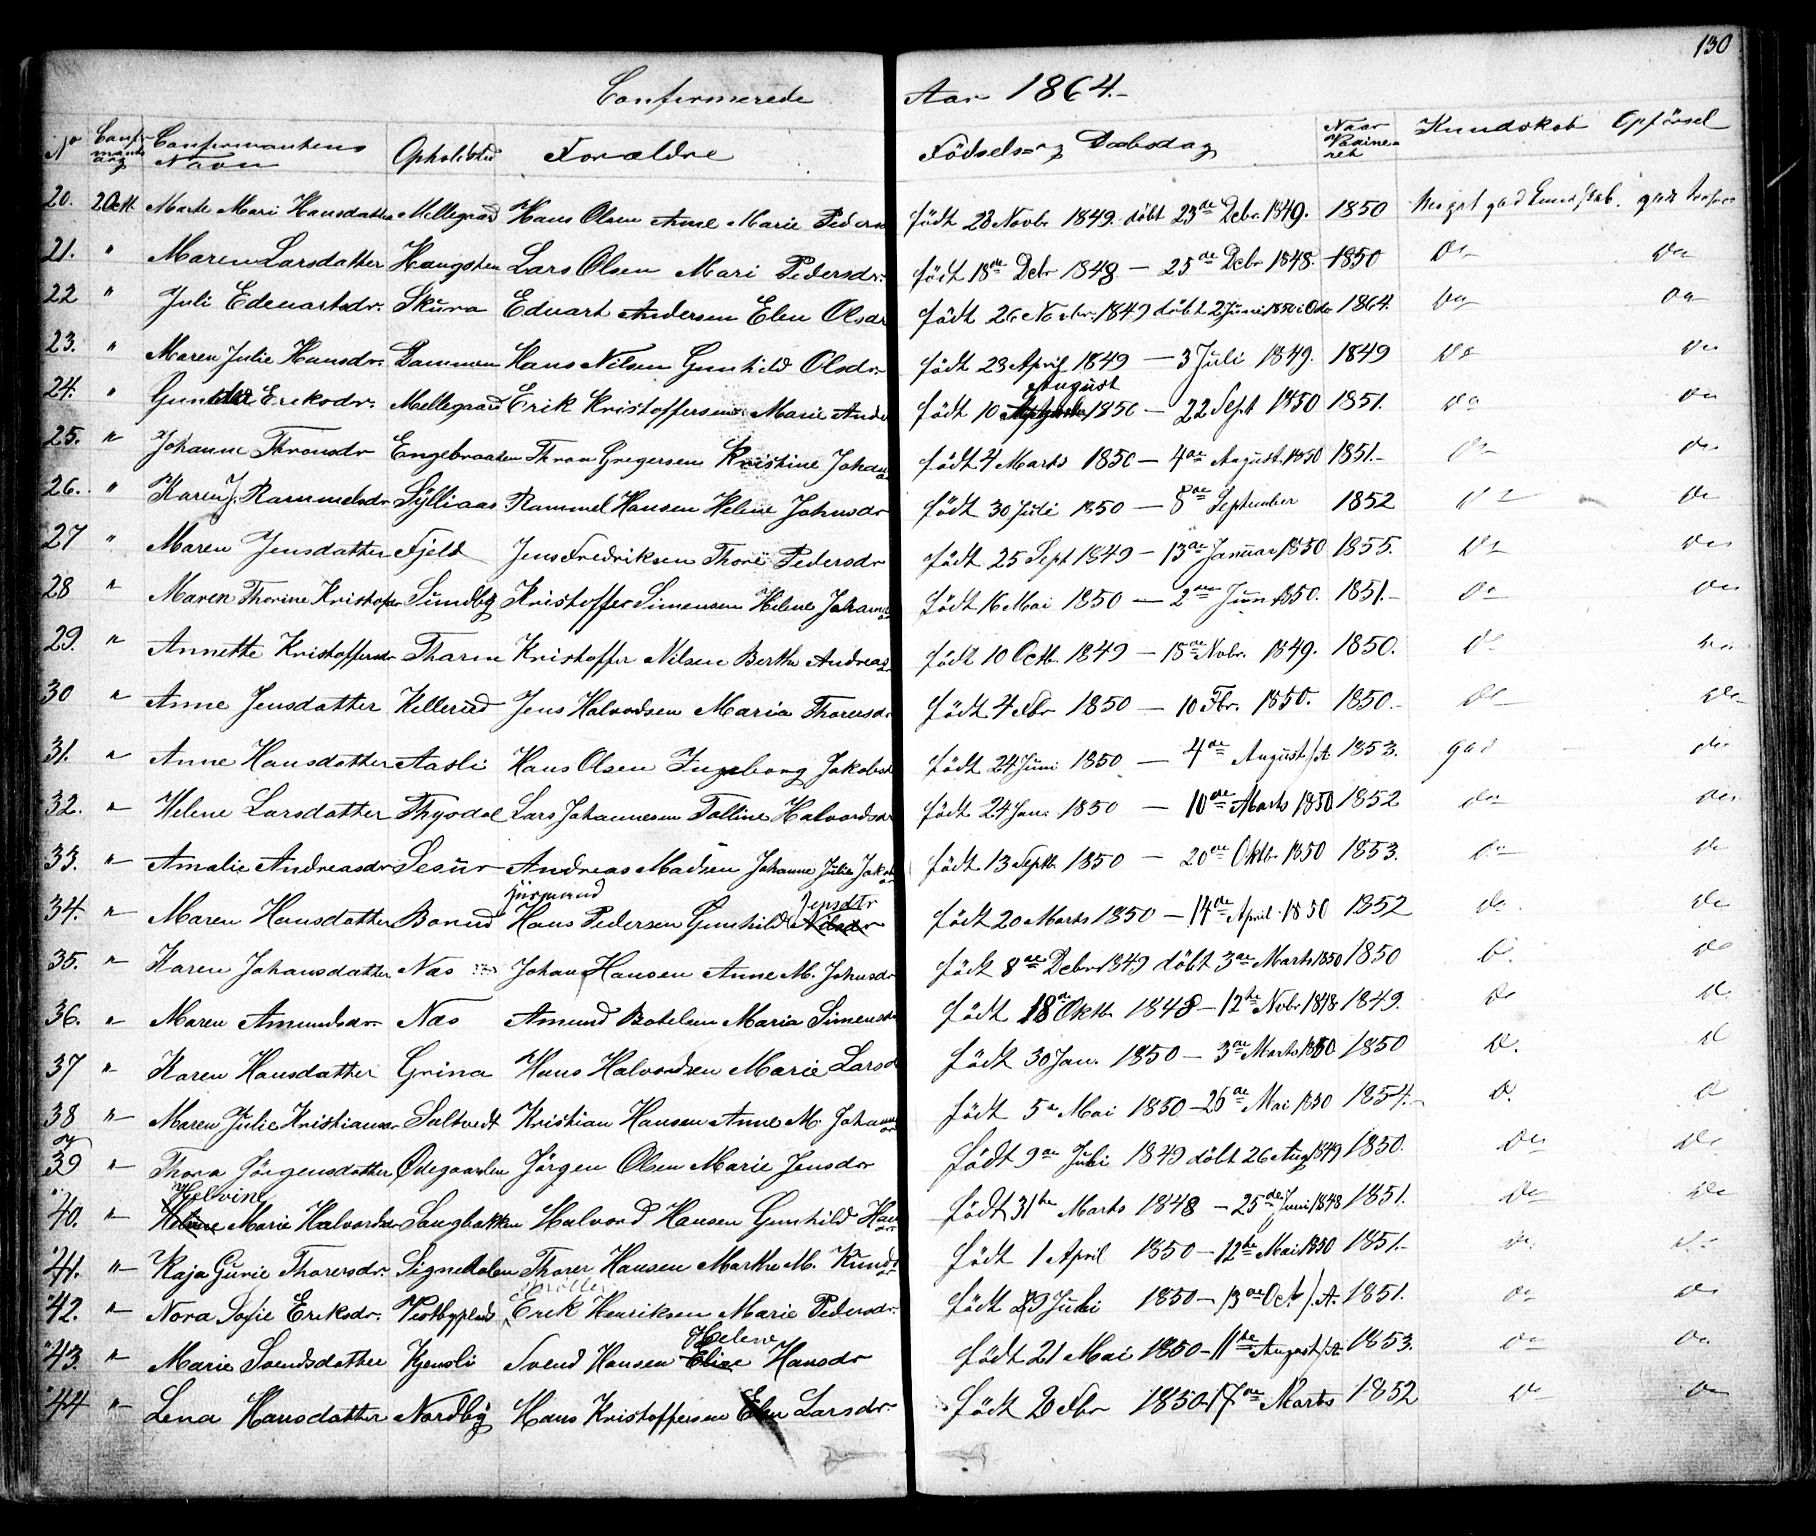 130
Confirmerede Aar 1864.-
No Confirmands Dag Confirmantens Navn Opholdsted Forældre Födsels og Daabsdag Naar Vaccineret Kundskab Opförsel
20. 2 Octb. Marte Mari Hansdatter Mellegaard Hans Olsen Anne Marie Peders födt 28 Novbr 1849. döbt 23de Debr. 1849. 1850 Meget god Kundskab. god
21. " Maren Larsdatter Haugsten Lars Olsen Mari Pedersdr. födt 18de Debr 1848 — 25de Debr 1848. 1850 Do Do
22 " Juli Edevartsdr. Skura Edvart Andersen Elen Olsdr födt 26 Novbr. 1849 döbt 2 Juni 1850 1864. Do Do
23. " Maren Julie Hansdr. Dammen Hans Nilsen Gunhild Olsdr födt 23 April 1849 — 3 Juli 1849. 1849 Do Do
24. " Eriksdr. Mellegaard Erik Kristoffersen Marie Ande födt 10 August 1850 — 22 Sept 1850 1851. Do Do
25. " Johanne Thronsdr Engebraaten Thron Gregersen Kristine Johan födt 4 Marts 1850 — 4de August 1850 1851.- Do Do
26. " Karen J. Rammelsdr Sylliaas Rammel Hansen Helene Johnsdr födt 30 Juli 1850 — 8de September 1852 Do Do
27 " Maren Jensdatter Fjeld Jens Fredriksen Thore Pedersdr födt 25 Sept 1849 — 13de Januar 1850 1855. Do Do
28 " Maren Thorine Kristofer Sundby Kristoffer Simensen Helene Johann födt 16 Mai 1850 — 2den Juni 1850. 1851.- Do Do
29. " Annette Kristoffersdr Tharm Kristoffer Nilsen Berthe Andreas födt 10 Octb. 1849 — 18de Novbr. 1849. 1850. Do Do
30 " Anne Jensdatter Kellerud Jens Halvordsen Maria Thoresdr födt 4 Fbr 1850 — 10 Fbr. 1850. 1850.- Do Do
31. " Anne Hansdatter Aasli Hans Olsen Ingeborg Jakobsd födt 24 Juni 1850 — 4de August /A 1853. god do
32. " Helene Larsdatter Thysdal Lars Johannesen Talline Halvordsdr födt 24 Jan. 1850 — 10de Marts 1850 1852 do do
33. " Amalie Andreasdr Sesur Andreas Madsen Johanne Julie Jakob födt 13 Septb. 1850 — 20de Oktb. 1850 1853. do do
34. " Maren Hansdatter Borud Hans Pedersen Gunhild Jensdtr födt 20 Marts 1850 — 14de April 1850 1852 do do
35. " Karen Johansdatter Næs Johan Hansen Anne M. Johnsdr födt 8de Debr 1849 döbt 3de Marts 1850 1850 D. do
36. " Maren Amundsdr. Næs Amund Botelsen Maria Simensd födt 18de Oktb. 1848 — 12te Nobr 1848. 1849. Do D.
37 " Karen Hansdatter Grina Hans Halvordsen Marie Larsd födt 30 Jan. 1850 — 3de Marts 1850. 1850 D. D
38 " Maren Julie Kristiansdr Saltvedt Kristian Hansen Anne M. Johann födt 5e Mai 1850 — 26de Mai 1850 1854.- D. D
39 " Thora Jörgensdatter Ödegaarden Jörgen Olsen Marie Jensdr födt 9de Juli 1849 döbt 26 Aug 1849 1850. Do Do
40. " Helvine Marie Halvordsdr Saugbakken Halvord Hansen Gunhild Han födt 31te Marts 1848 — 25de Juni 1848 1851. Do Do
41. " Kaja Gurie Thoresdr. Signedalen Thorer Hansen Marthe M. Knuds födt 1 April 1850 — 12te Mai 1850 1851.- Do Do
42. " Nora Sofie Eriksdr. Vestbyplads Erik Henriksen Marie Pedersdr. födt 29 Juli 1850 — 13de Octb /A. 1851. Do Do
43. " Marie Svendsdatter Kjensli Svend Hansen Helene Hansdr födt 21 Mai 1850 — 11te August /A 1853. Do Do
44 " Lena Hansdatter Nordby Hans Kristoffersen Elen Larsdr födt 20 Fbr 1850 — 17de Marts 1852 Do Do